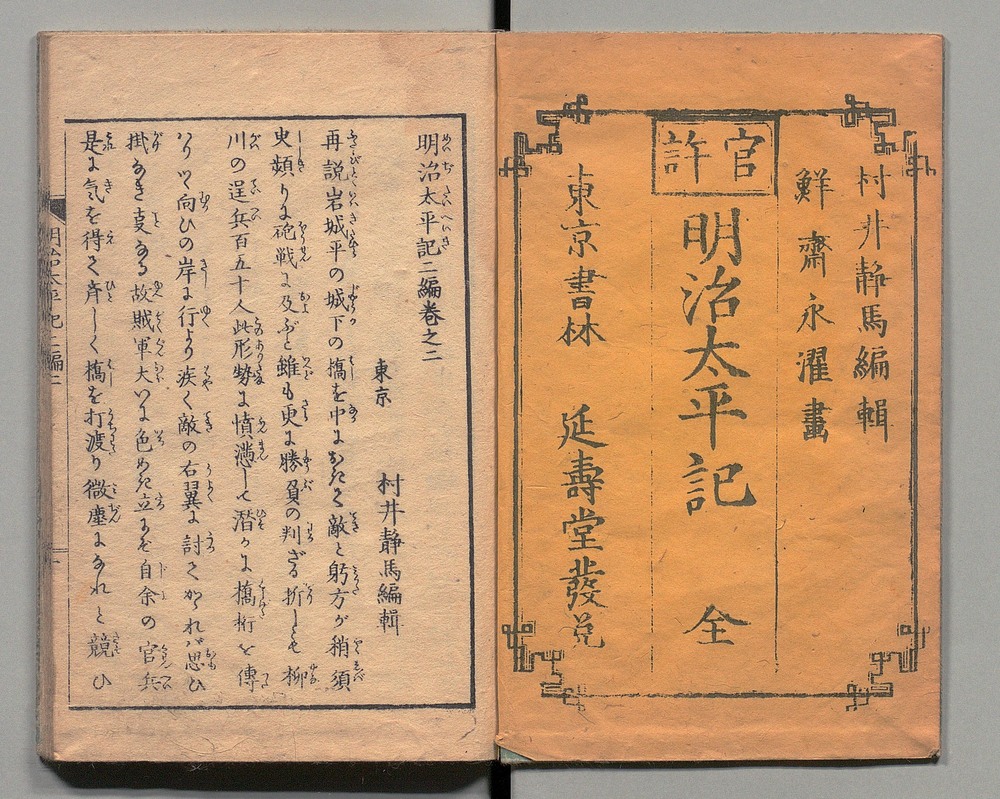 村井静馬編輯
鮮齋永濯畫
官許
明治太平記 全
東京書林 延壽堂發兌
明治太平記二編巻之二
東京 村井静馬編輯
再説岩城平の城下の橋を中におきて敵と躬方が稍須
臾頻りに砲戦に及ぶと雖も更に勝負の判ざる折しも柳
川の逞兵百五十人此形勢に憤懣して潜かに橋桁を傳
ひつつ向ひの岸に行より疾く敵の右翼に討てかかれバ思ひ
掛なき事なる故賊軍大いに色めき立にぞ自余の官兵
是に気を得て斉しく橋を打渡り微塵になれと競ひ
明治太平記二編二